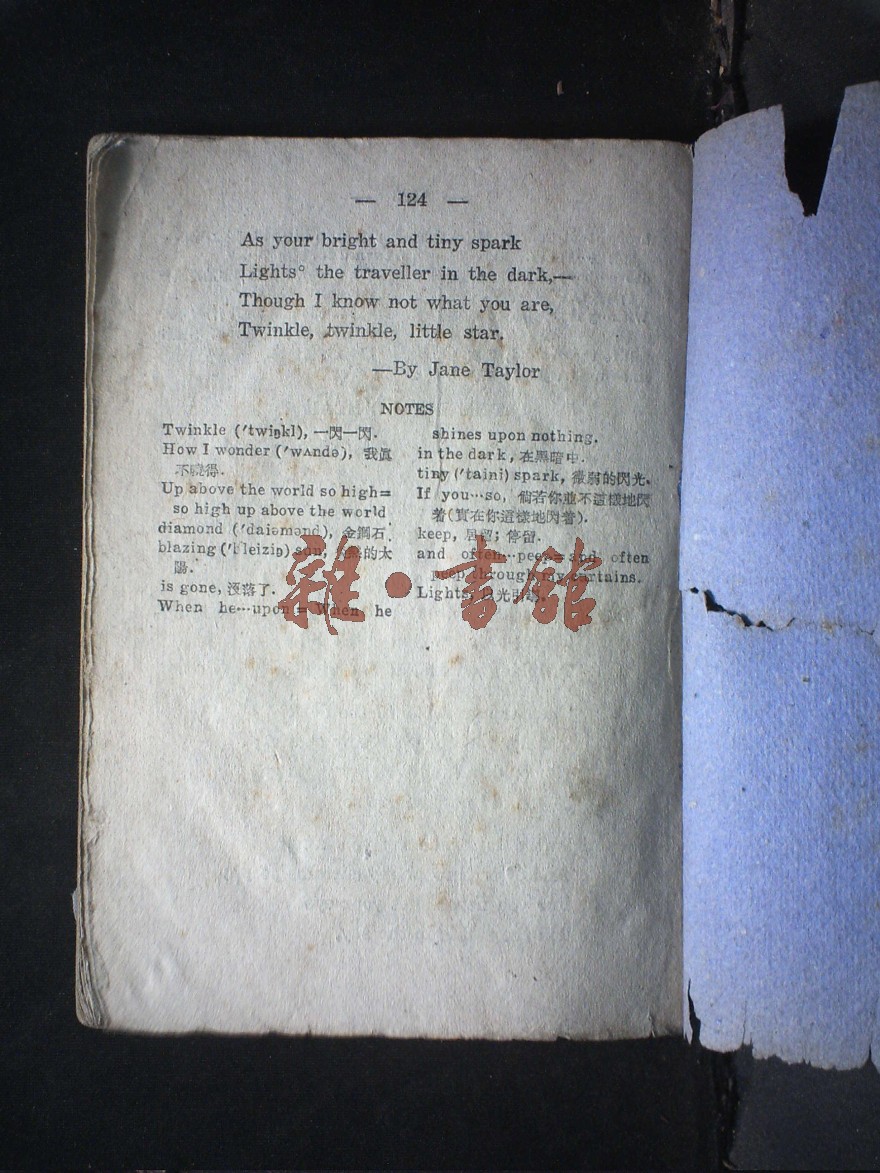 — 124 —
As your bright and tiny spark
Lights° the traveller in the dark,—
Though I know not what you are,
Twinkle, twinkle, little star.
—By Jane Taylor
NOTES
Twinkle (′twiŋkl), 一閃一閃.
How I wonder (′wʌndə), 我眞
不曉得.
Up above the world so high=
so high up above the world
diamond (′daiəmənd), 金鋼石.
blazing (′bleiziŋ) sun, 的太
陽.
is gone, 沒落了.
When he…upon = When he
shines upon nothing.
in the dark, 在黑暗中.
tiny (′taini) spark, 微弱的閃光.
If you…so, 倘若你並不這樣地閃
着(實在你這樣地閃着).
keep, 居留; 停留.
and often…peep=and often
peep through my curtains.
Lights, 光引
雜·書館